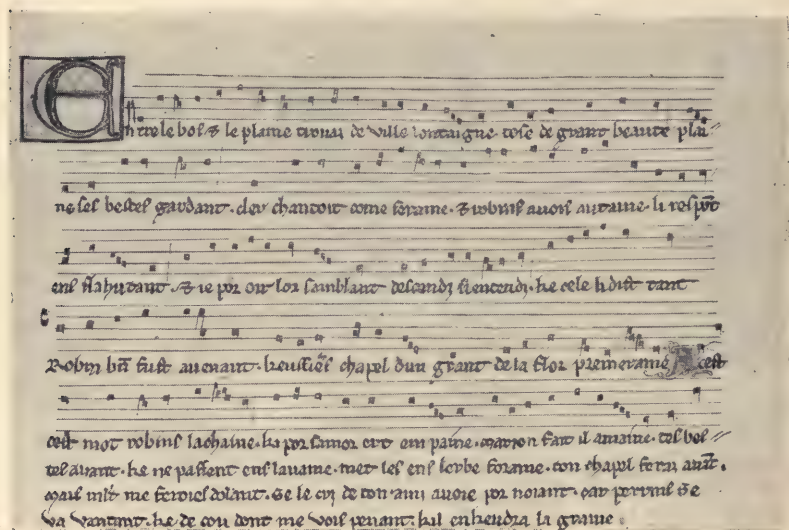 Entre le bos & le plaine trovai de ville lontaigne. tose de grant beaute plai
ne ses bestes gardant. cler chantoit come seraine. & robins a vois autaine. li respont
ens flahutant. & ie por oir lor samblant descendi sientendi. ke cele li dist tant
Robin bn fust avenant. keussies chapel dun grant de la flor premeraine A cest
cest mot robins lachaine. ki por samor ert em paine. marion fait il amaine. tes bes
tes avant. ke ne passent ens lavaine. met les ens lerbe foraine. ton chapel ferai avant.
mais mlt me feroies dolant. se le cri de ton ami avoie por noiant. car perrins se
va vantant. ke de cou dont me vois penant. kil enkendra la graine.